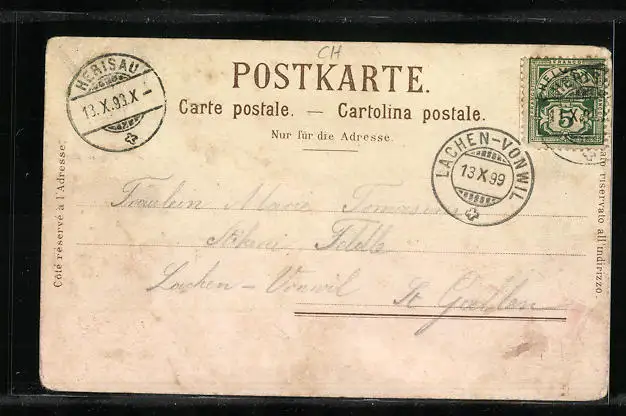 CH
POSTKARTE.
Carte postale. — Cartolina postale.
Nur für die Adresse.
HERISAU
13.X.99.X–
HELVETIA
5
LACHEN-VONWIL
13 X 99
Côté réservé à l'Adresse.
lato riservato all'indirizzo.
Fräulein Marie
Lachen - Vonwil St Gallen